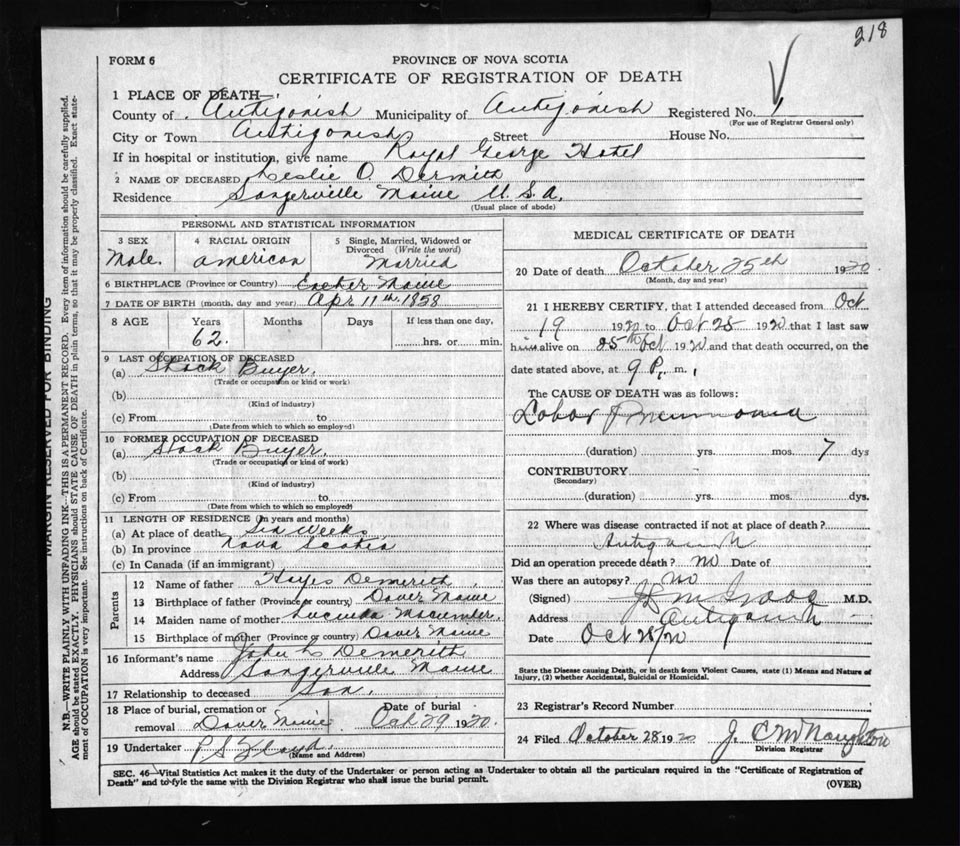 218
FORM 6
PROVINCE OF NOVA SCOTIA
CERTIFICATE OF REGISTRATION OF DEATH
1 PLACE OF DEATH—
County of Antigonish Municipality of Antigonish Registered No. 1
(For use of Registrar General only)
City or Town Antigonish Street House No.
If in hospital or institution, give name Royal George Hotel
2 NAME OF DECEASED Leslie O. Dermith
Residence Sangerville Maine U.S.A.
(Usual place of abode)
PERSONAL AND STATISTICAL INFORMATION
3 SEX 4 RACIAL ORIGIN 5 Single, Married, Widowed or Divorced (Write the word)
Male. American Married
6 BIRTHPLACE (Province or Country) Exeter Maine
7 DATE OF BIRTH (month, day and year) Apr 11th. 1858
8 AGE Years Months Days If less than one day,
62. hrs. or min.
9 LAST OCCUPATION OF DECEASED
(a) Stock Buyer.
(Trade or occupation or kind of work)
(b)
(Kind of industry)
(c) From to
(Date from which to which so employed)
10 FORMER OCCUPATION OF DECEASED
(a) Stock Buyer.
(Trade or occupation or kind of work)
(b)
(Kind of industry)
(c) From to
(Date from which to which so employed)
11 LENGTH OF RESIDENCE (In years and months)
(a) At place of death Six Weeks
(b) In province Nova Scotia
(c) In Canada (if an immigrant)
Parents
12 Name of father Hayes Demerith
13 Birthplace of father (Province or country) Dover Maine
14 Maiden name of mother Lucinda Macumber
15 Birthplace of mother (Province or country) Dover Maine
16 Informant's name John L Demerith
Address Sangerville Maine
17 Relationship to deceased Son.
18 Place of burial, cremation or removal Dover Maine Date of burial Oct 29 1920.
19 Undertaker P S Floyd.
(Name and Address)
MEDICAL CERTIFICATE OF DEATH
20 Date of death October 25th 1920.
(Month, day and year)
21 I HEREBY CERTIFY, that I attended deceased from Oct
19 1920 to Oct 25 1920 that I last saw
him alive on 25th Oct 1920 and that death occurred, on the
date stated above, at 9 P. m.
The CAUSE OF DEATH was as follows:
Lobar Pneumonia
(duration) yrs. mos. 7 dys
CONTRIBUTORY
(Secondary)
(duration) yrs. mos. dys.
22 Where was disease contracted if not at place of death?
Antigonish
Did an operation precede death? No Date of
Was there an autopsy? No
(Signed) M.D.
Address Antigonish
Date Oct 28/20
State the Disease causing Death, or in death from Violent Causes, state (1) Means and Nature of
Injury, (2) whether Accidental, Suicidal or Homicidal.
23 Registrar's Record Number
24 Filed October 28 1920 J. C McNaughton
Division Registrar
SEC. 46—Vital Statistics Act makes it the duty of the Undertaker or person acting as Undertaker to obtain all the particulars required in the "Certificate of Registration of
Death" and to fyle the same with the Division Registrar who shall issue the burial permit.
(OVER)
MARGIN RESERVED FOR BINDING
N.B.—WRITE PLAINLY WITH UNFADING INK—THIS IS A PERMANENT RECORD. Every item of information should be carefully supplied.
AGE should be stated EXACTLY. PHYSICIANS should STATE CAUSE OF DEATH in plain terms, so that it may be properly classified. Exact state-
ment of OCCUPATION is very important. See instructions on back of Certificate.